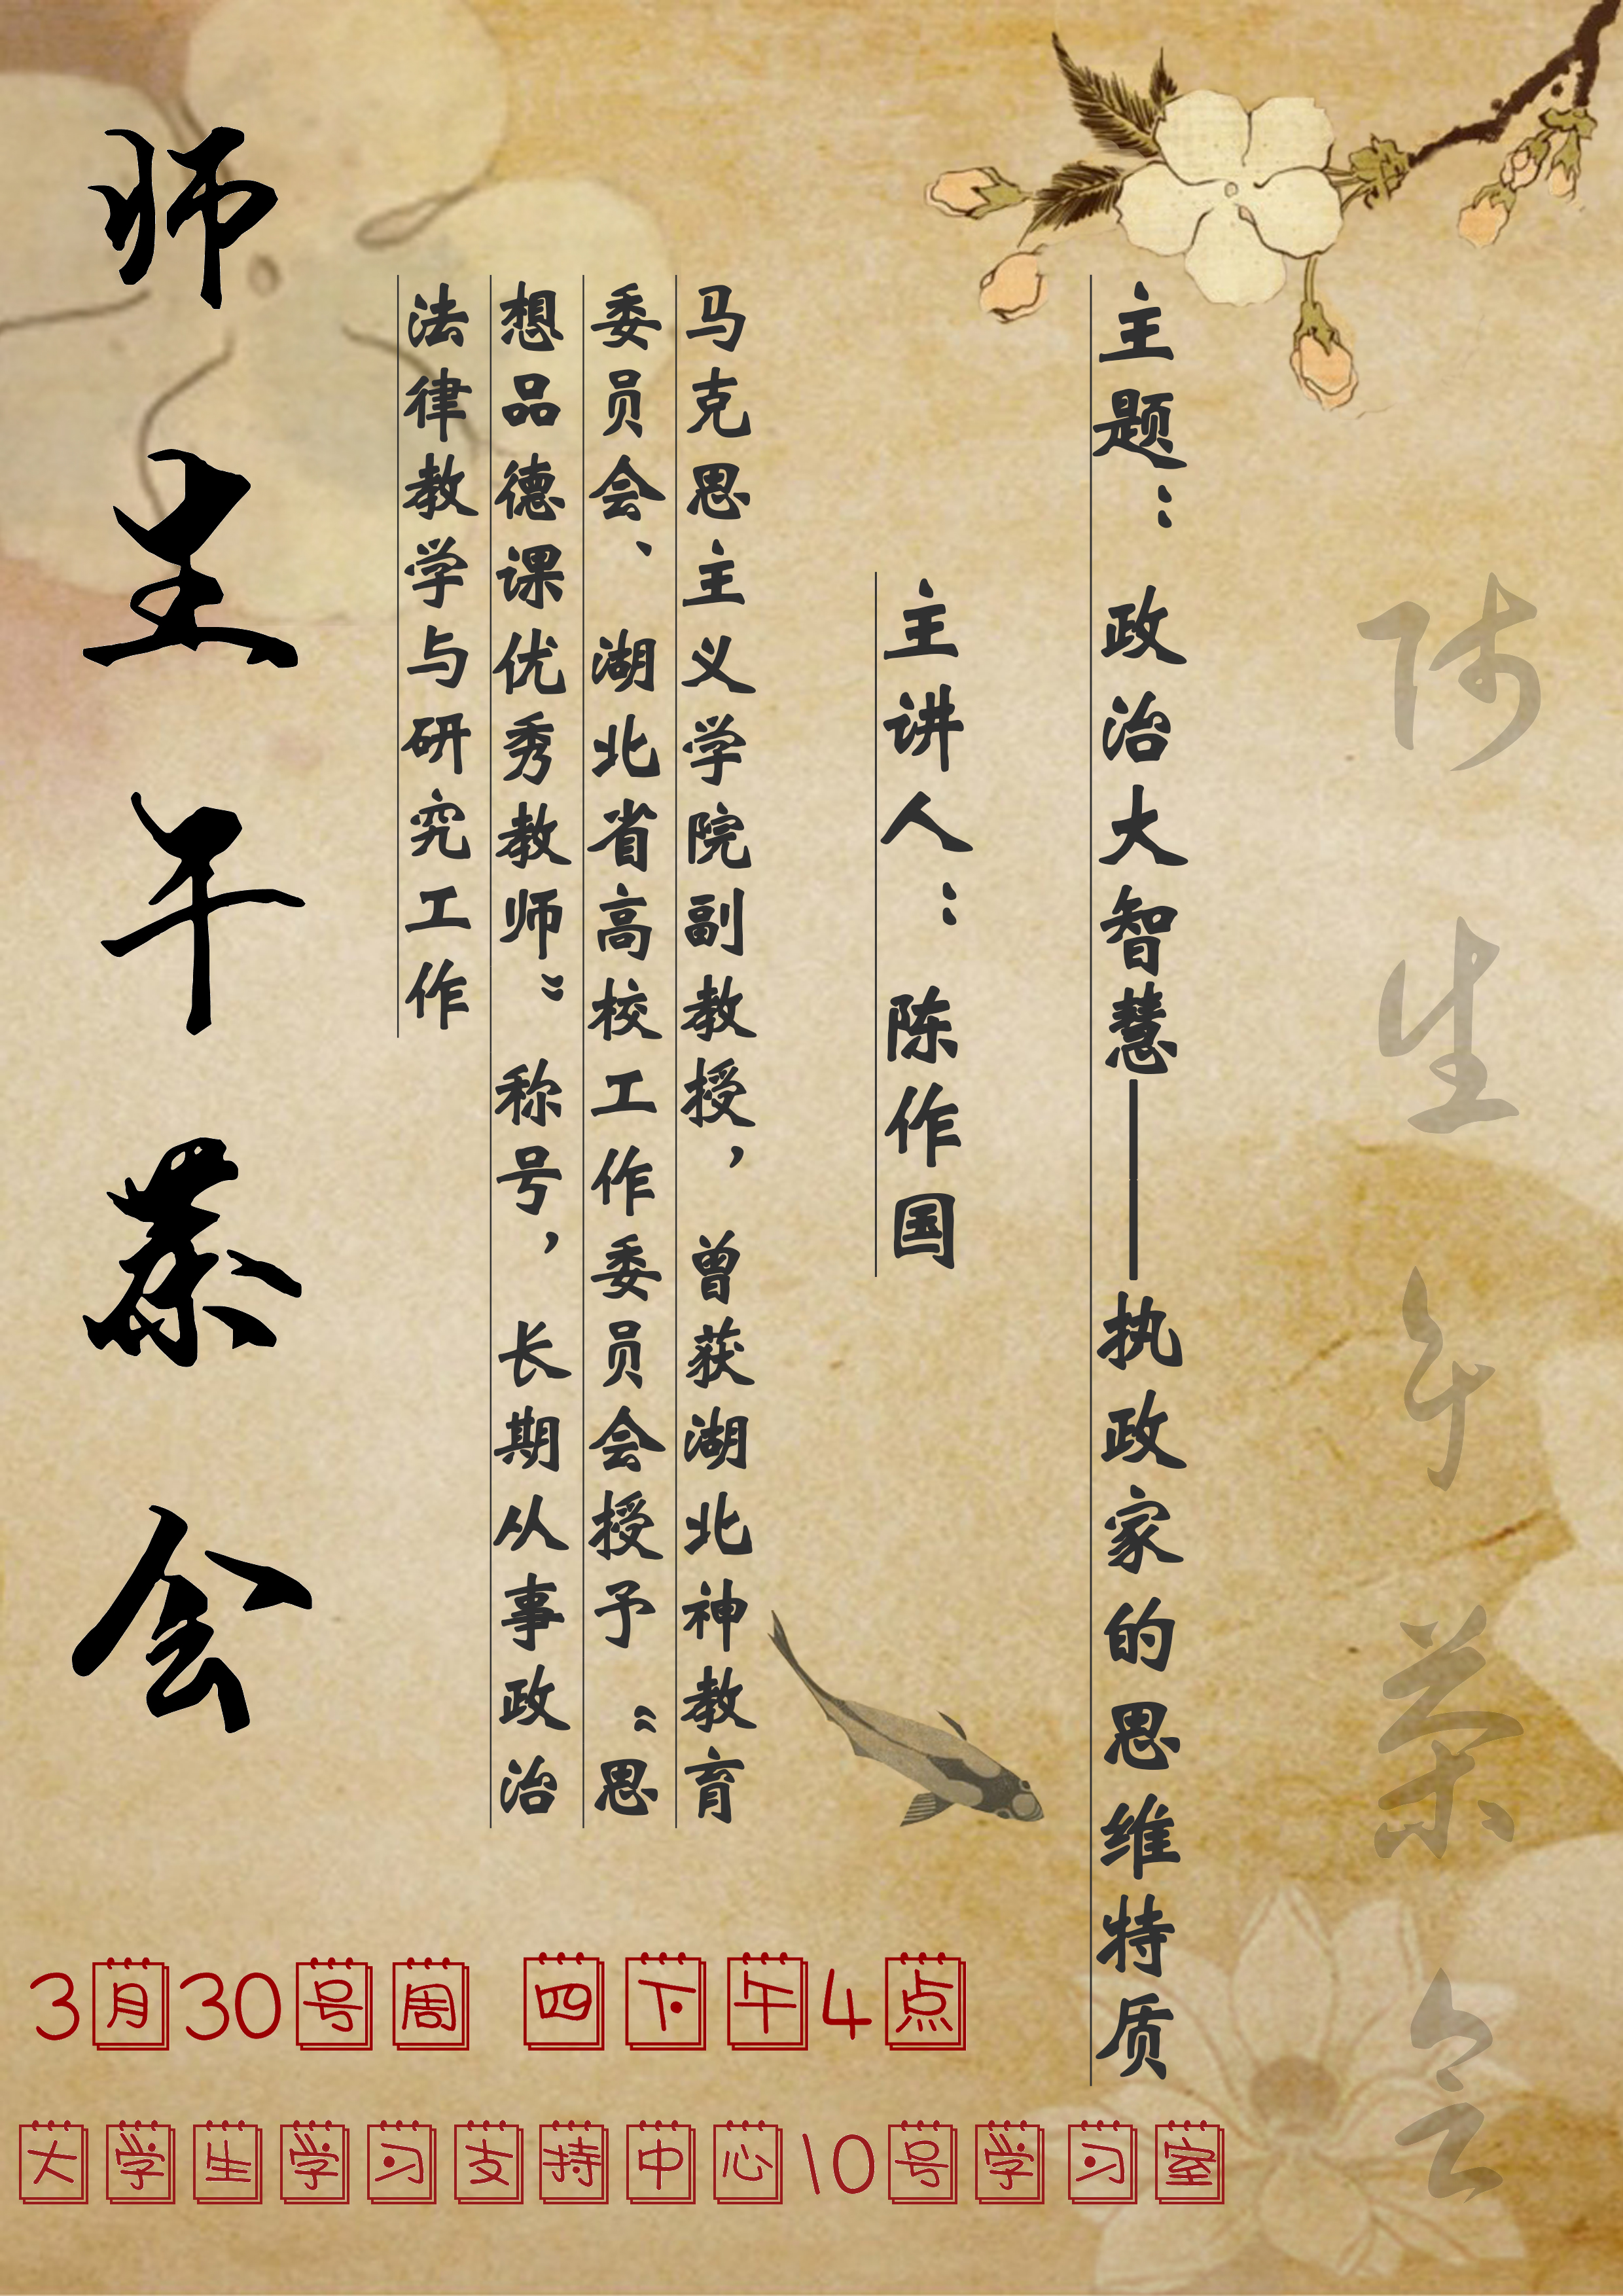 师生午茶会
主题：政治大智慧——执政家的思维特质
主讲人：陈作国
马克思主义学院副教授，曾获湖北神教育
委员会、湖北省高校工作委员会授予“思
想品德课优秀教师”称号，长期从事政治
法律教学与研究工作
师生午茶会
3月30号周 四下午4点
大学生学习支持中心10号学习室